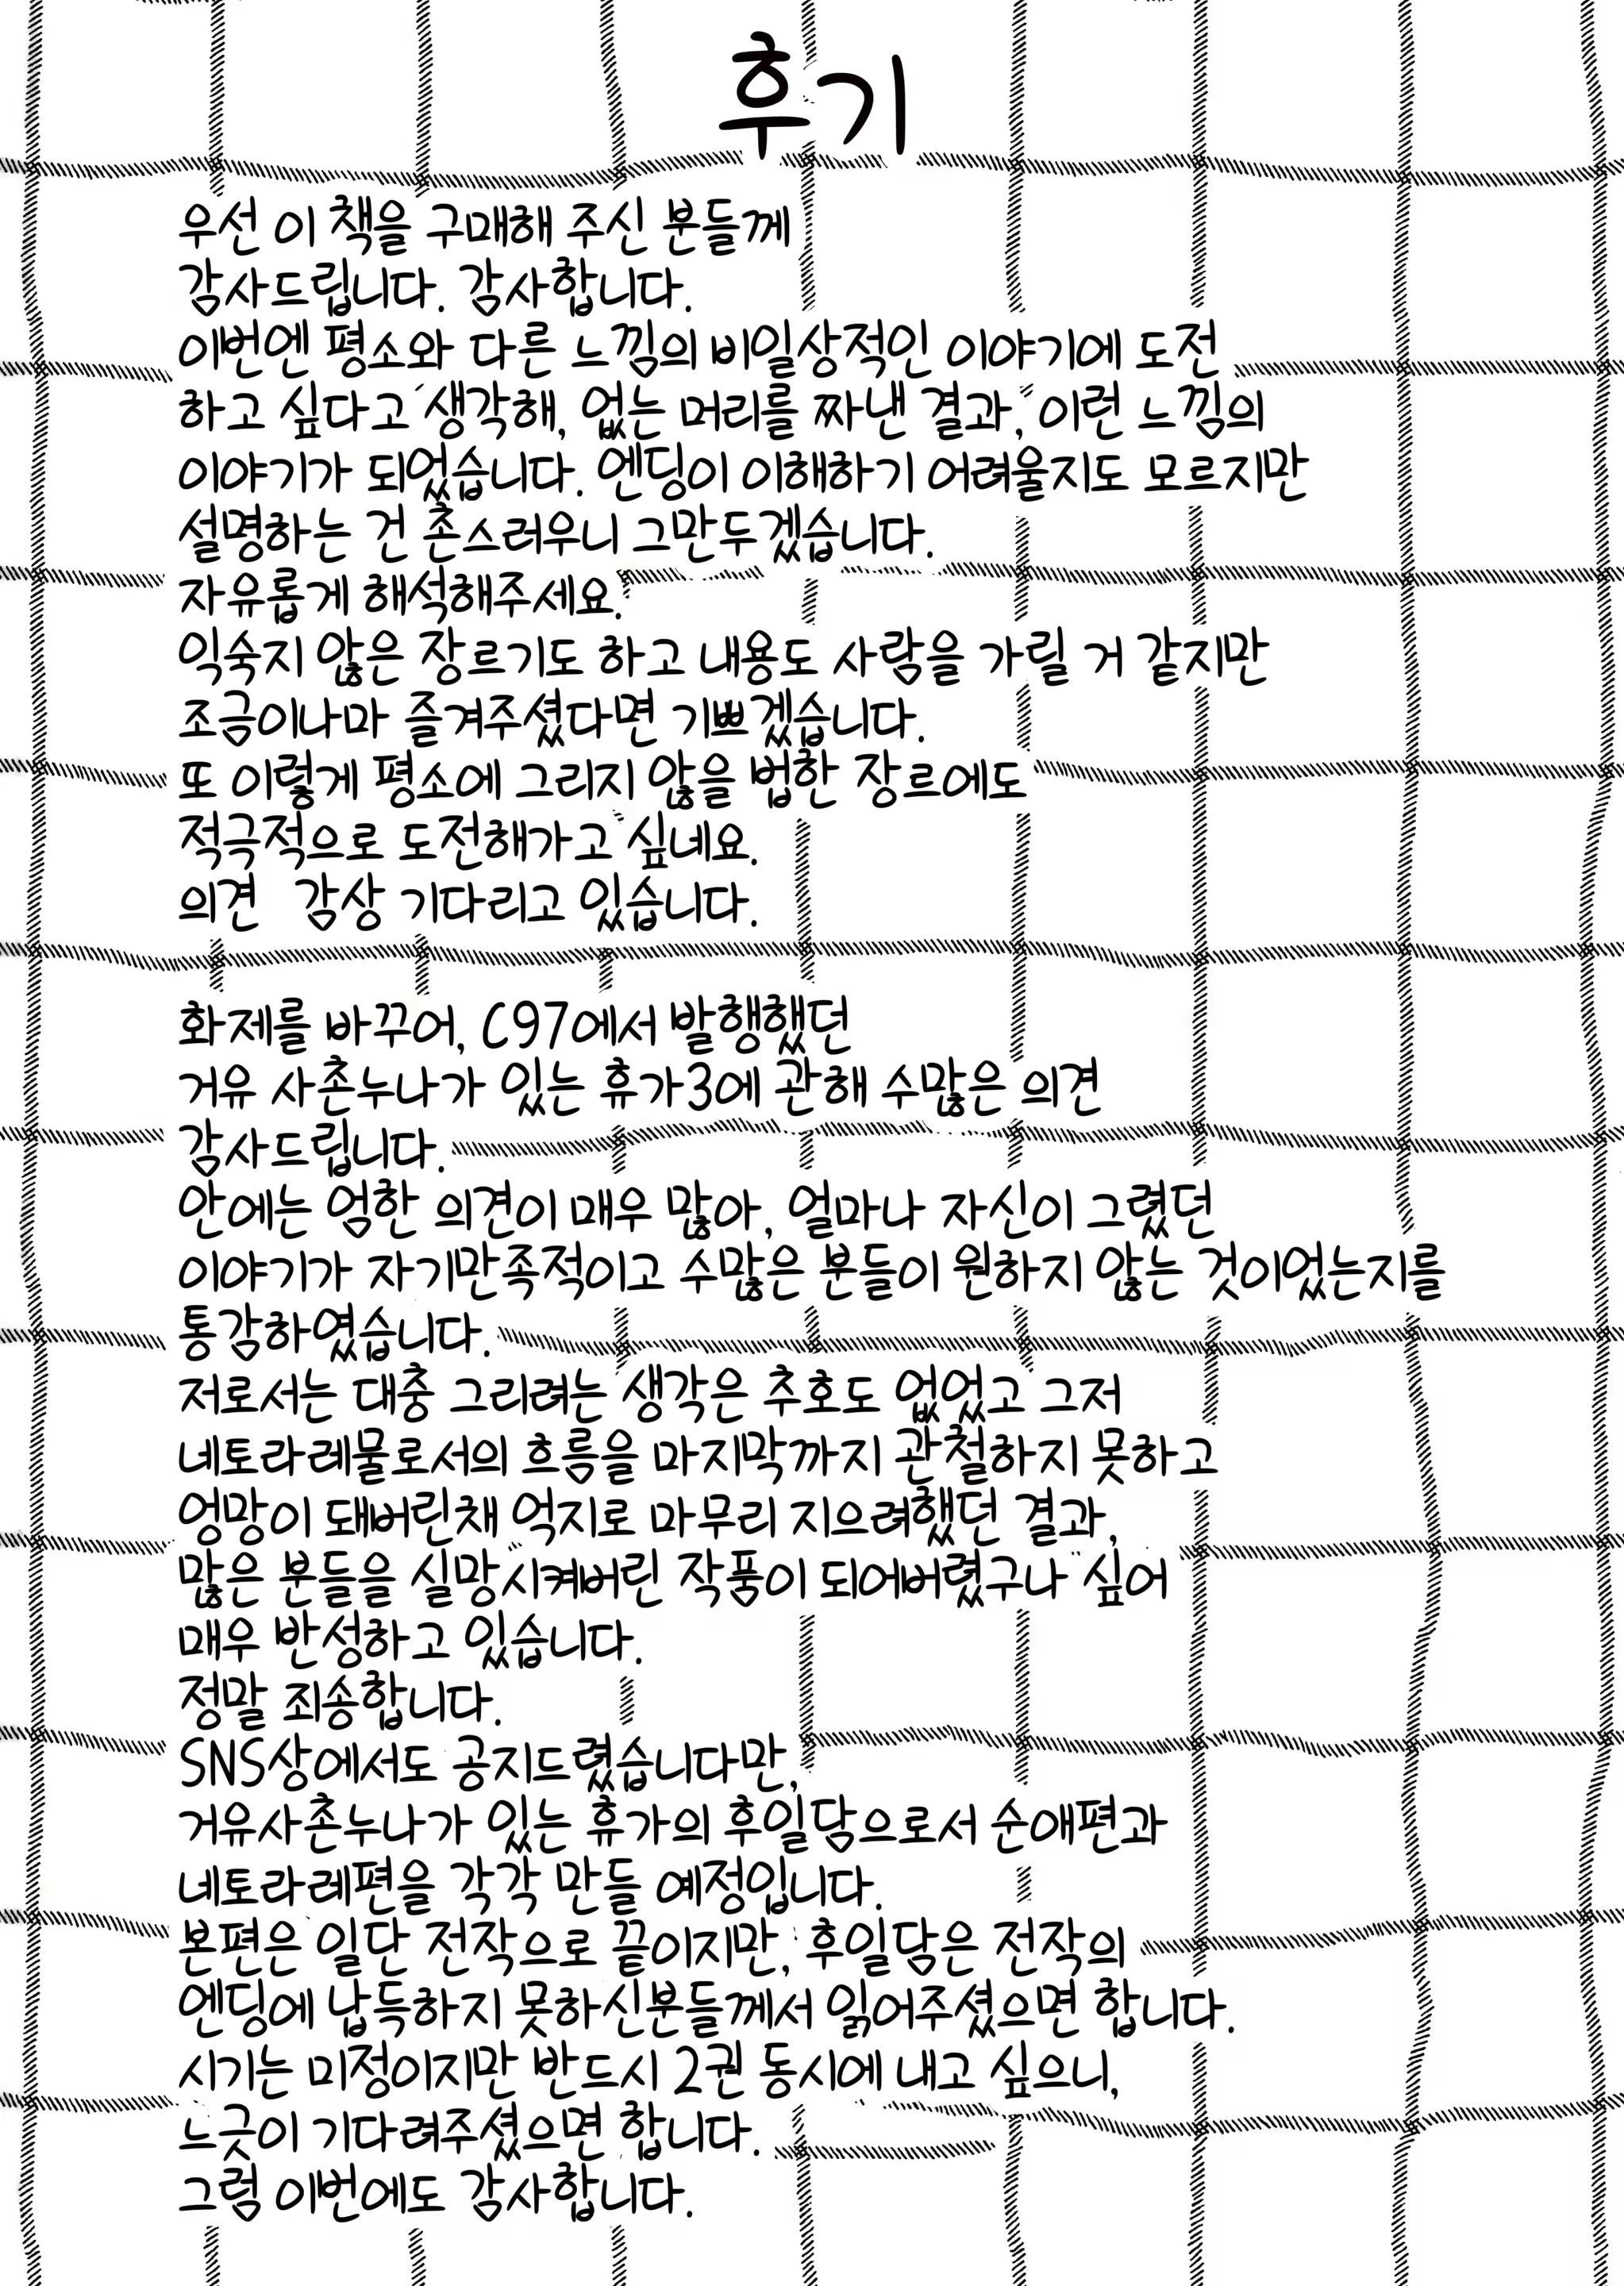 후기
우선 이 책을 구매해 주신 분들께
감사드립니다. 감사합니다.
이번엔 평소와 다른 느낌의 비일상적인 이야기에 도전
하고 싶다고 생각해, 없는 머리를 짜낸 결과, 이런 느낌의
이야기가 되었습니다. 엔딩이 이해하기 어려울지도 모르지만
설명하는 건 촌스러우니 그만두겠습니다.
자유롭게 해석해주세요.
익숙지 않은 장르기도 하고 내용도 사람을 가릴 거 같지만
조금이나마 즐겨주셨다면 기쁘겠습니다.
또 이렇게 평소에 그리지 않을 법한 장르에도
적극적으로 도전해가고 싶네요.
의견 감상 기다리고 있습니다.
화제를 바꾸어, C97에서 발행했던
거유 사촌누나가 있는 휴가3에 관해 수많은 의견
감사드립니다.
안에는 엄한 의견이 매우 많아, 얼마나 자신이 그렸던
이야기가 자기만족적이고 수많은 분들이 원하지 않는 것이었는지를
통감하였습니다.
저로서는 대충 그리려는 생각은 추호도 없었고 그저
네토라레물로서의 흐름을 마지막까지 관철하지 못하고
엉망이 돼버린채 억지로 마무리 지으려했던 결과,
많은 분들을 실망시켜버린 작품이 되어버렸구나 싶어
매우 반성하고 있습니다.
정말 죄송합니다.
SNS상에서도 공지드렸습니다만,
거유사촌누나가 있는 휴가의 후일담으로서 순애편과
네토라레편을 각각 만들 예정입니다.
본편은 일단 전작으로 끝이지만, 후일담은 전작의
엔딩에 납득하지 못하신분들께서 읽어주셨으면 합니다.
시기는 미정이지만 반드시 2권 동시에 내고 싶으니,
느긋이 기다려주셨으면 합니다.
그럼 이번에도 감사합니다.